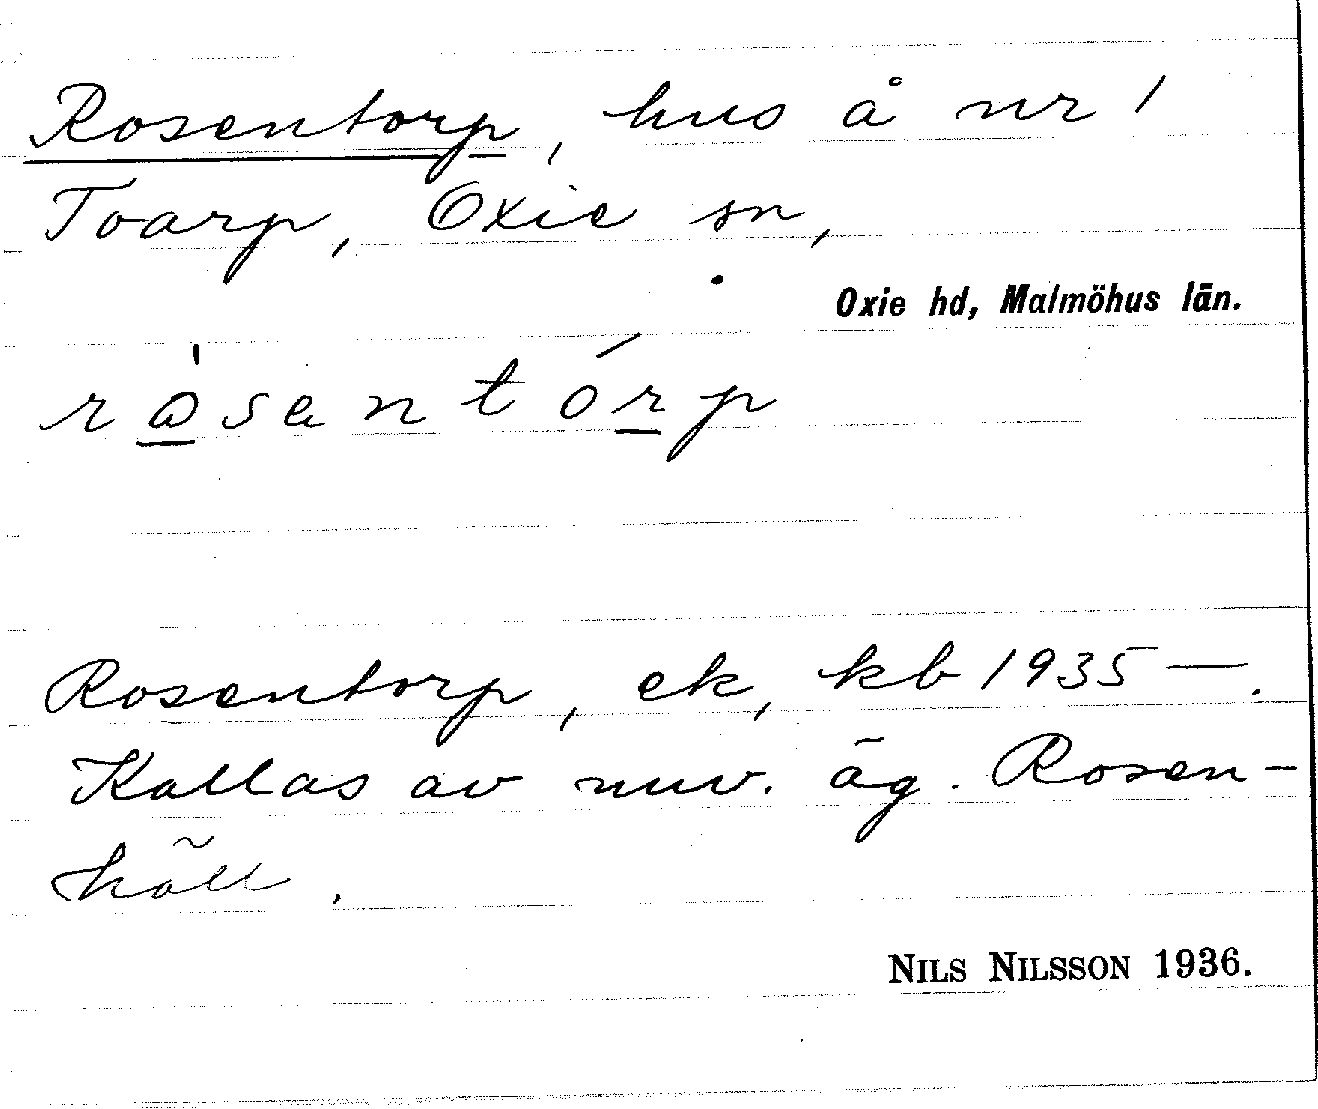 Rosentorp, hus å nr 1
Toarp, Oxie sn,
Oxie hd, Malmöhus län.
rosentórp
Rosentorp, ek, kb 1935 —.
Kallas av nuv. äg. Rosen-
häll.
NILS NILSSON 1936.